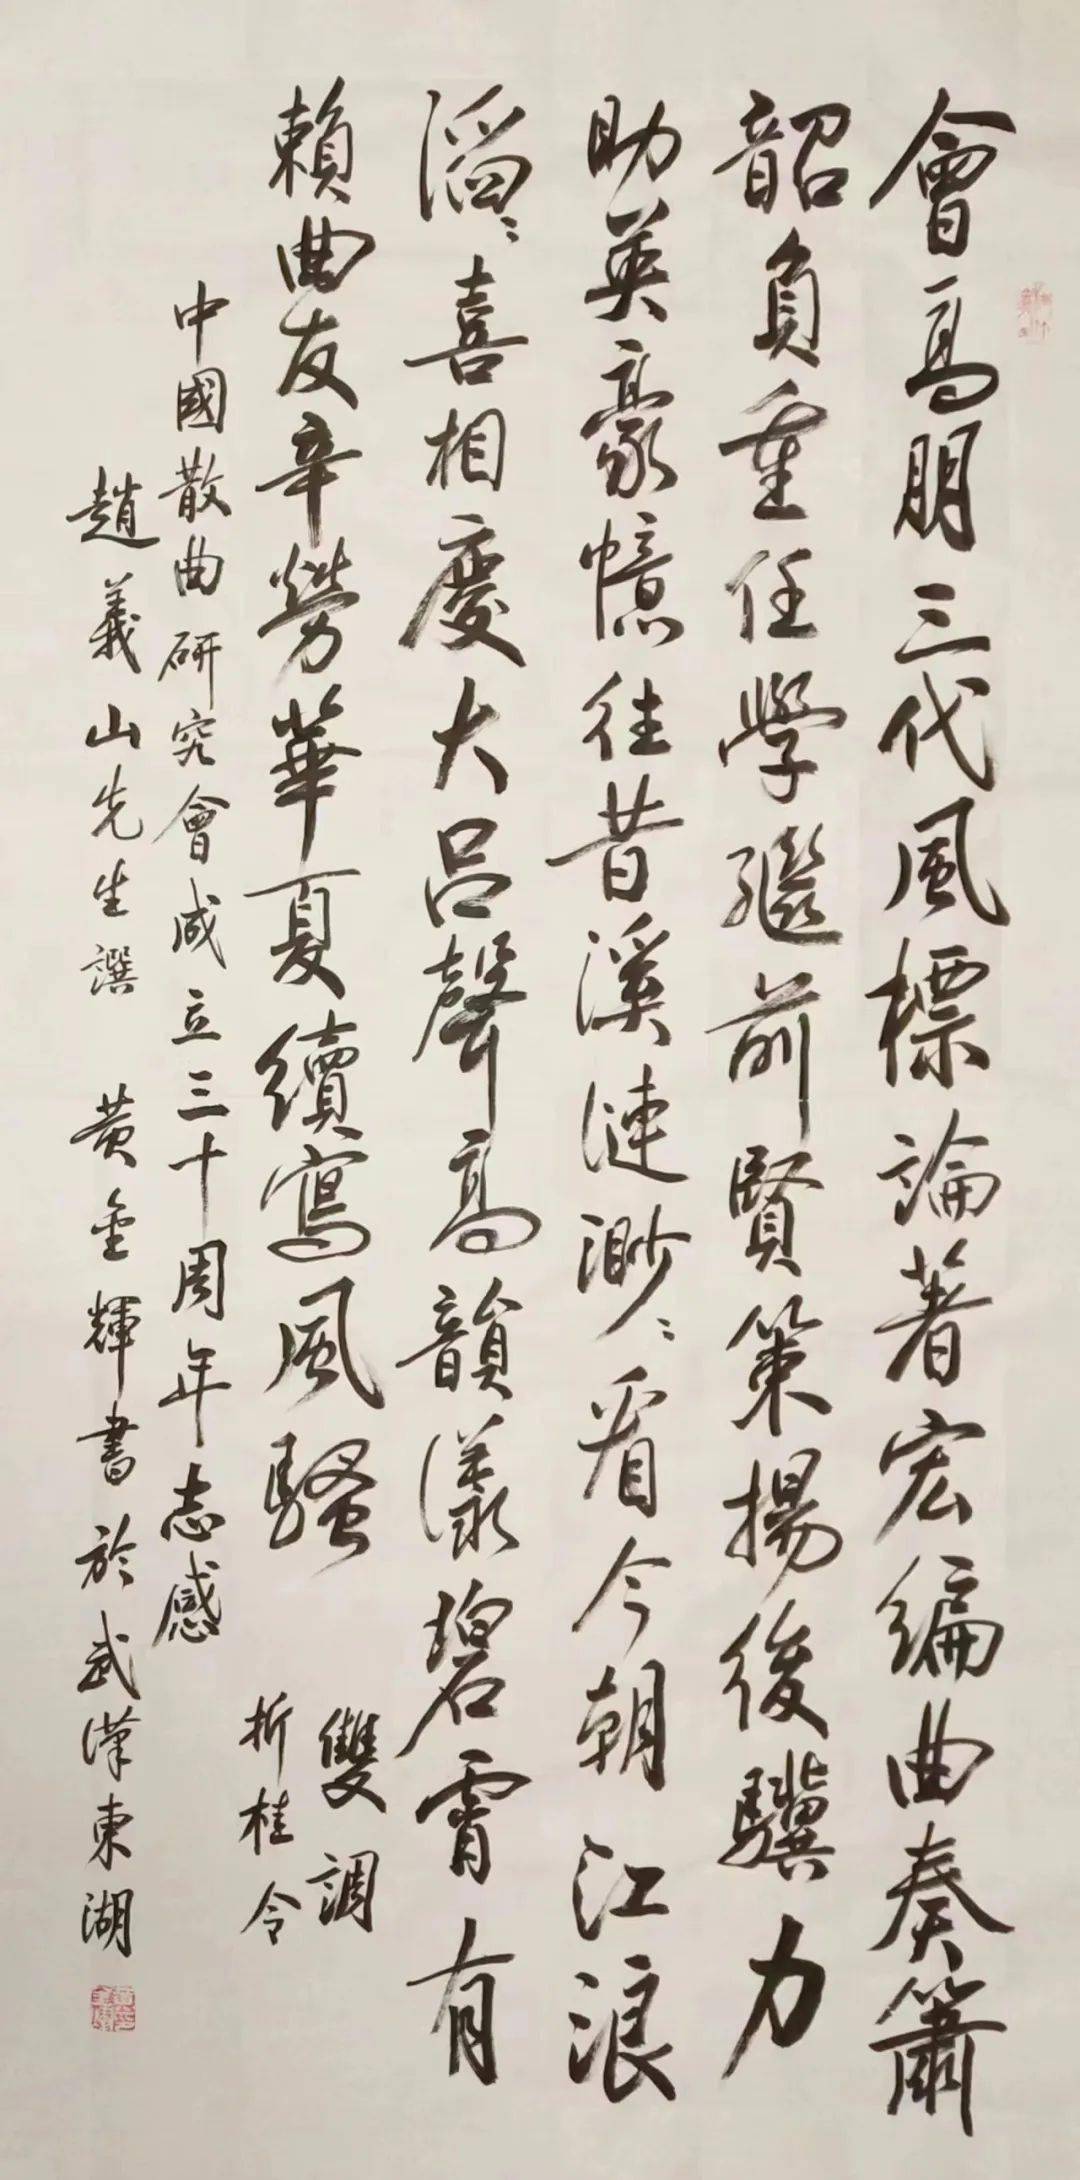 會高朋三代風標論著宏編曲奏簫
韶負重任學繼前賢策揚後驥力
助英豪憶往昔溪漣渺〻看今朝江浪
滔〻喜相慶大呂聲高韻漾碧霄有
賴曲友辛勞華夏續寫風騷
雙調
折桂令
中國散曲研究會成立三十周年志感
趙義山先生譔 黃金輝書於武漢東湖